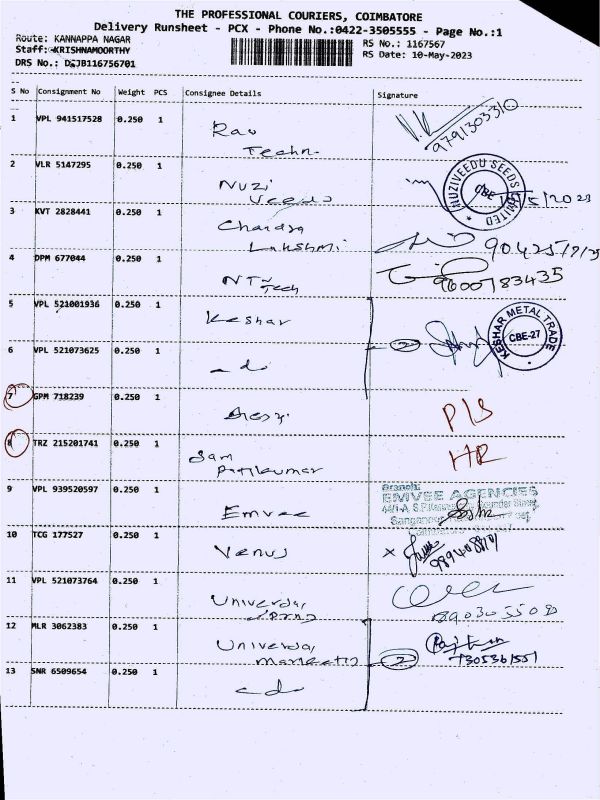 THE PROFESSIONAL COURIERS, COIMBATORE
Delivery Runsheet - PCX - Phone No.:0422-3505555 - Page No.:1
Route: KANNAPPA NAGAR
Staff: KRISHNAMOORTHY
DRS No.: 116756701
RS No.: 1167567
RS Date: 10-May-2023
S No Consignment No Weight PCS Consignee Details Signature
1 VPL 941517528 0.250 1 Rav Techn.
2 VLR 5147295 0.250 1 Nuzi Veedu
NUZIVEEDU SEEDS LIMITED
CBE
3 KVT 2828441 0.250 1 Chandra Lakshmi
4 DPM 677044 0.250 1 NTS Tech 9600783435
5 VPL 521001936 0.250 1 Keshar
KESHAR METAL TRADE
CBE-27
6 VPL 521073625 0.250 1 - do 2
7 GPM 718239 0.250 1 P/S
8 TRZ 215201741 0.250 1 Sam HR
9 VPL 939520597 0.250 1 Emvee
Branch:
EMVEE AGENCIES
10 TCG 177527 0.250 1 Venus X
11 VPL 521073764 0.250 1 Universal
12 MLR 3062383 0.250 1 Universal Marketing 2 7305361551
13 SNR 6509654 0.250 1 - do